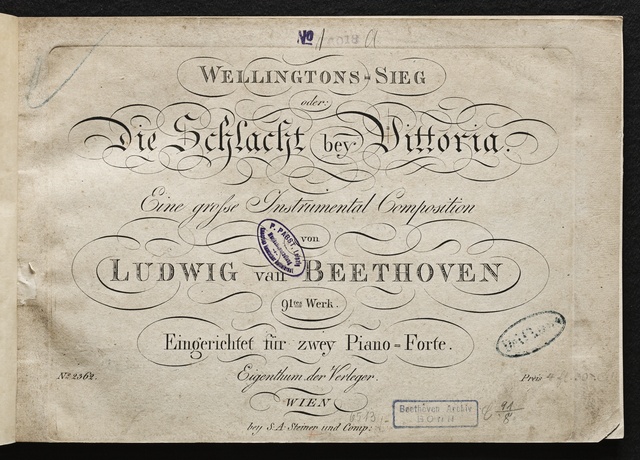 No
WELLINGTONS-SIEG
oder:
Die Schlacht bey Vittoria.
Eine grosse Instrumental Composition
von
P. PABST, Leipzig
LUDWIG van BEETHOVEN
91tes Werk.
Eingerichtet für zwey Piano-Forte.
No 2362.
Eigenthum der Verleger.
Preis
WIEN
Beethoven Archiv
BONN
bey S. A. Steiner und Comp: